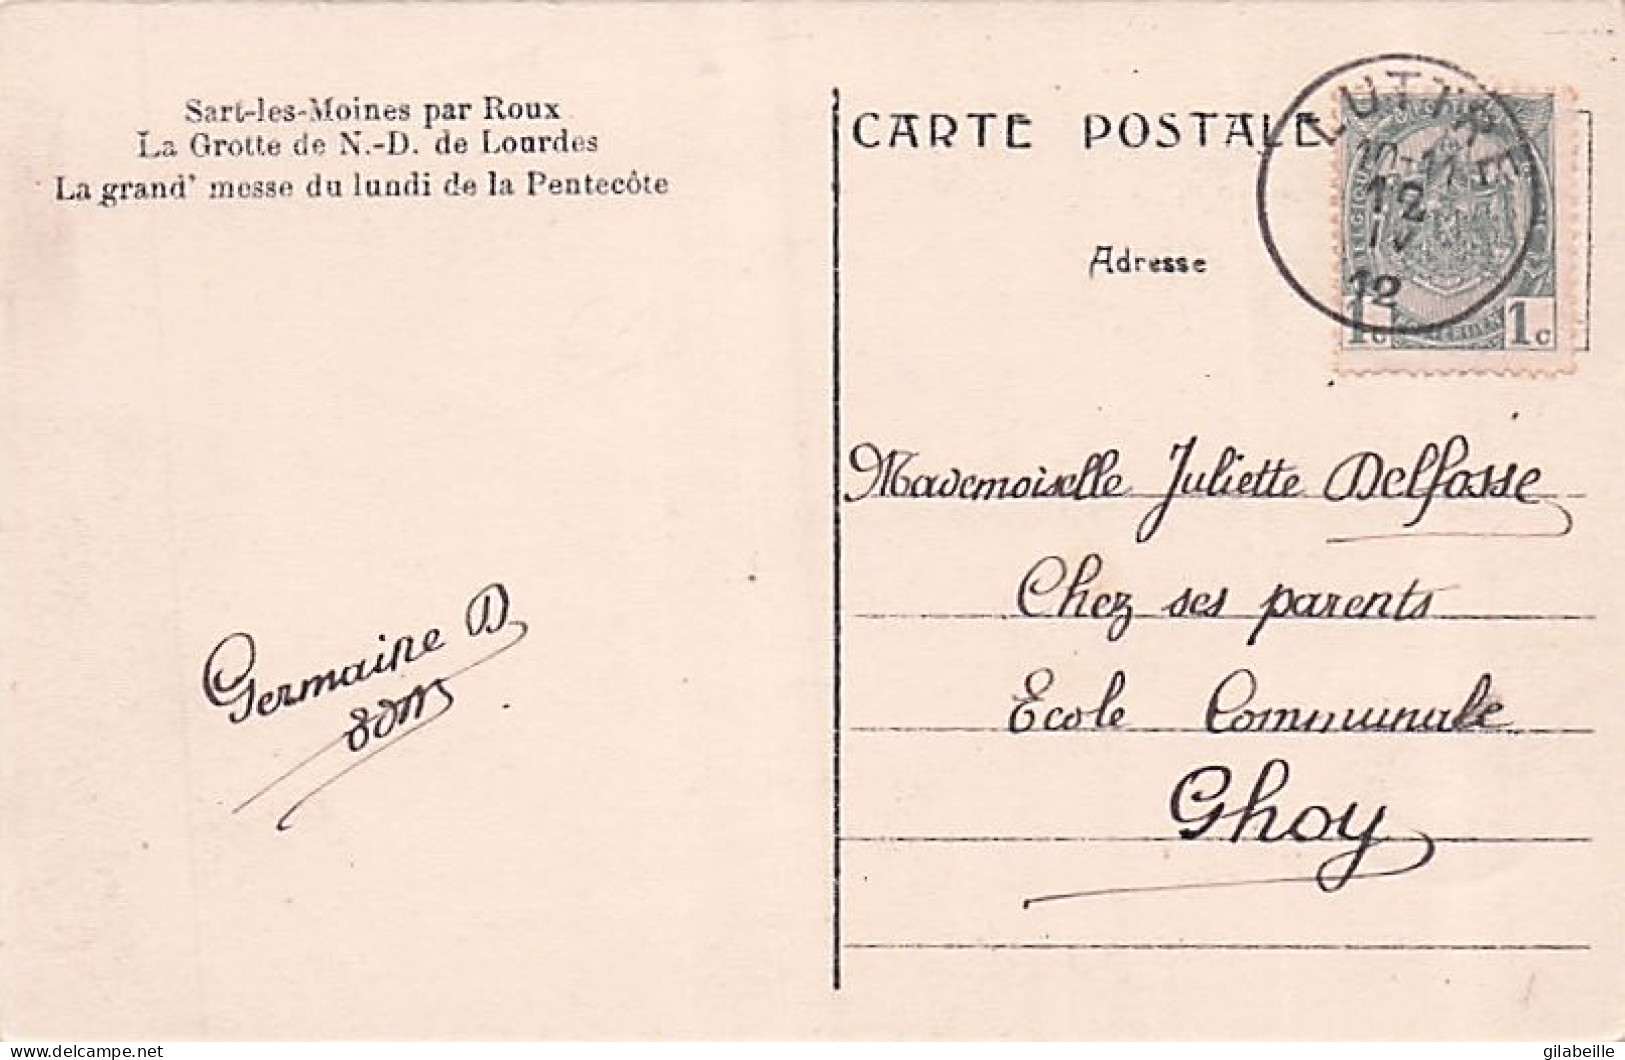 Sart-les-Moines par Roux
La Grotte de N.-D. de Lourdes
La grand' messe du lundi de la Pentecôte
CARTE POSTALE
LUTTRE
10-11
12
IV
12
1c 1c
Adresse
Mademoiselle Juliette Delfosse
Chez ses parents
Ecole Communale
Ghoy
Germaine D
delcampe.net
gilabeille